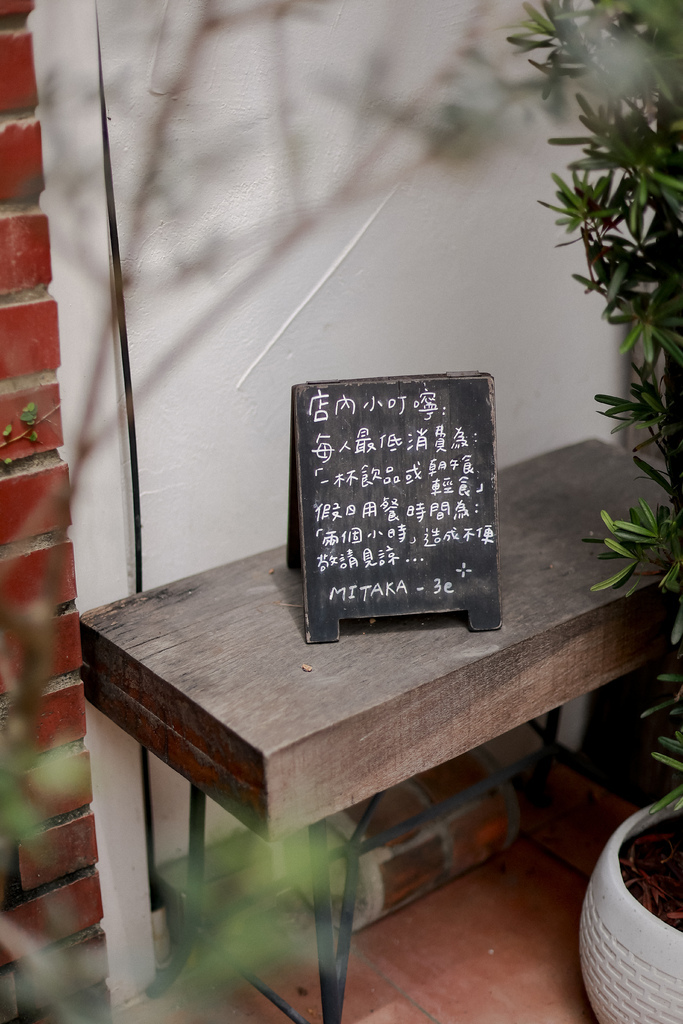 店內小叮嚀:
每人最低消費為:
「一杯飲品或朝午食
輕食」
假日用餐時間為:
「兩個小時」造成不便
敬請見諒...
MITAKA - 3e